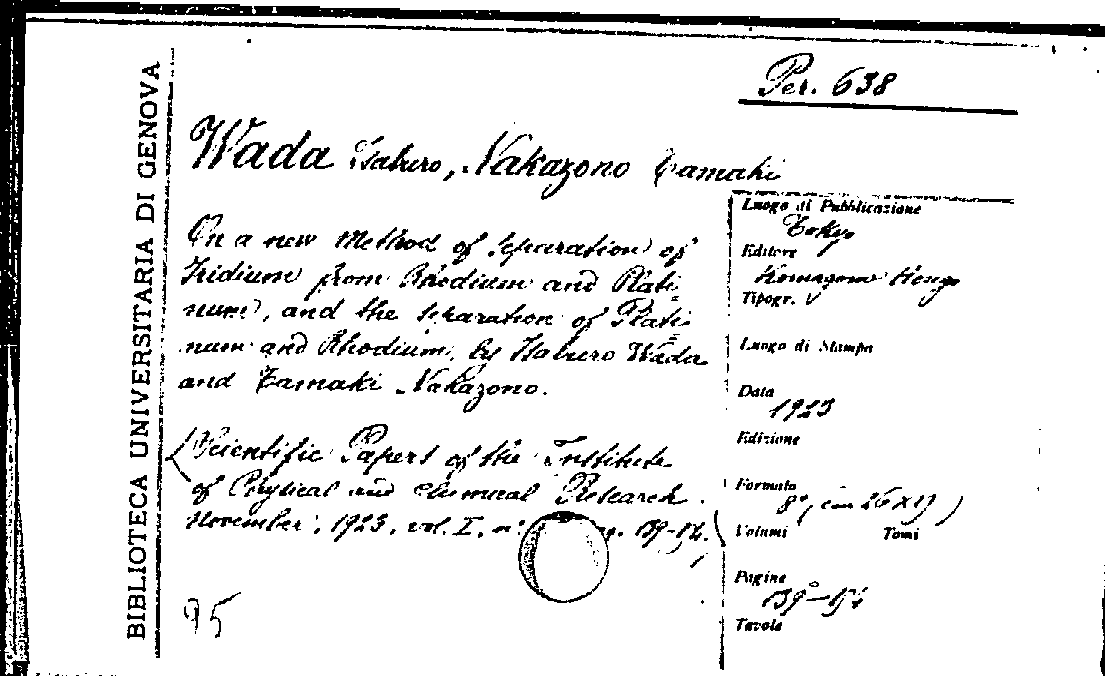 Per. 638
BIBLIOTECA UNIVERSITARIA DI GENOVA
Wada Isaburo, Nakazono Tamaki
On a new Method of separation of
Iridium from Rhodium and Plati-
num, and the separation of Plati-
num and Rhodium, by Isaburo Wada
and Tamaki Nakazono.
(Scientific Papers of the Institute
of Phytical and chemical Research.
November, 1923, vol. I, n° 139-154.)
95
Luogo di Pubblicazione
Tokyo
Editore
Komagome Hongo
Tipogr.
Luogo di Stampa
Data
1923
Edizione
Formato
8° (cm 26x19)
Volumi Tomi
Pagine
139-154
Tavole